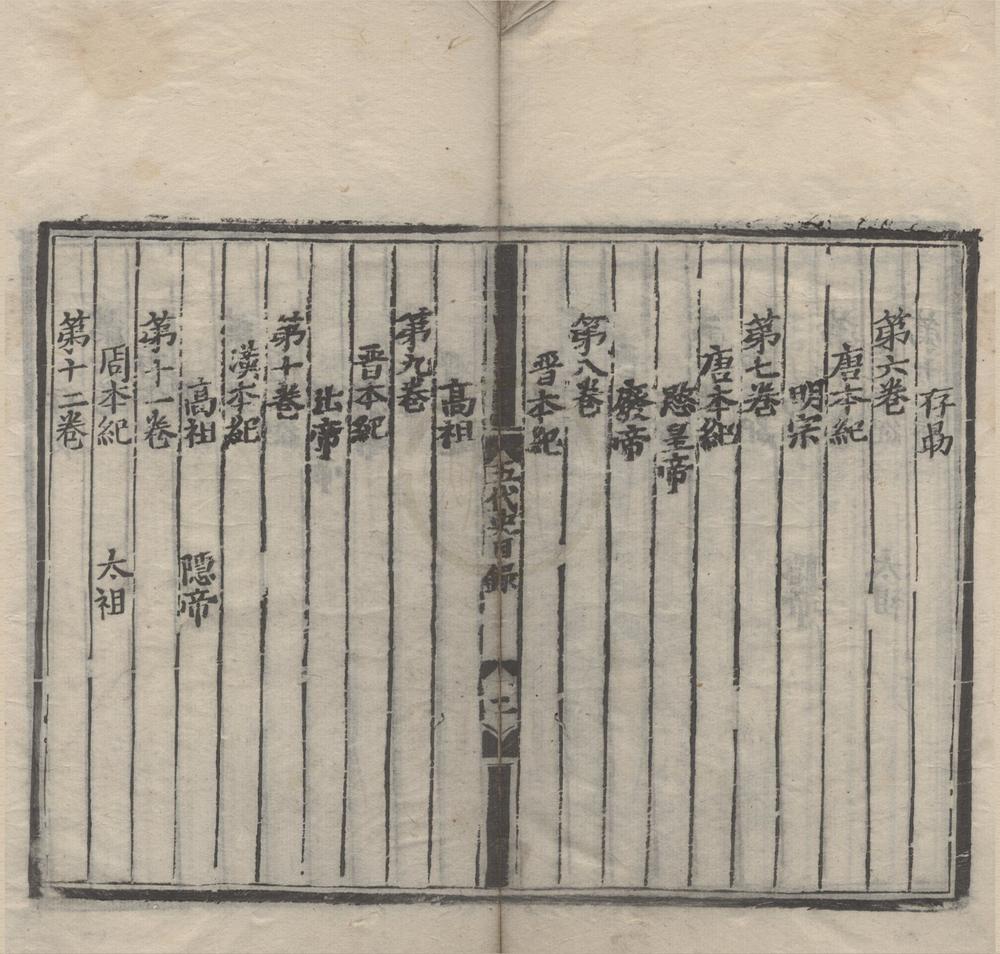 存勗
第六卷
唐本紀
明宗
第七卷
唐本紀
愍皇帝
廢帝
第八卷
晋本紀
五代史目録
二
高祖
第九卷
晋本紀
出帝
第十卷
漢本紀
高祖 隱帝
第十一卷
周本紀 太祖
第十二卷